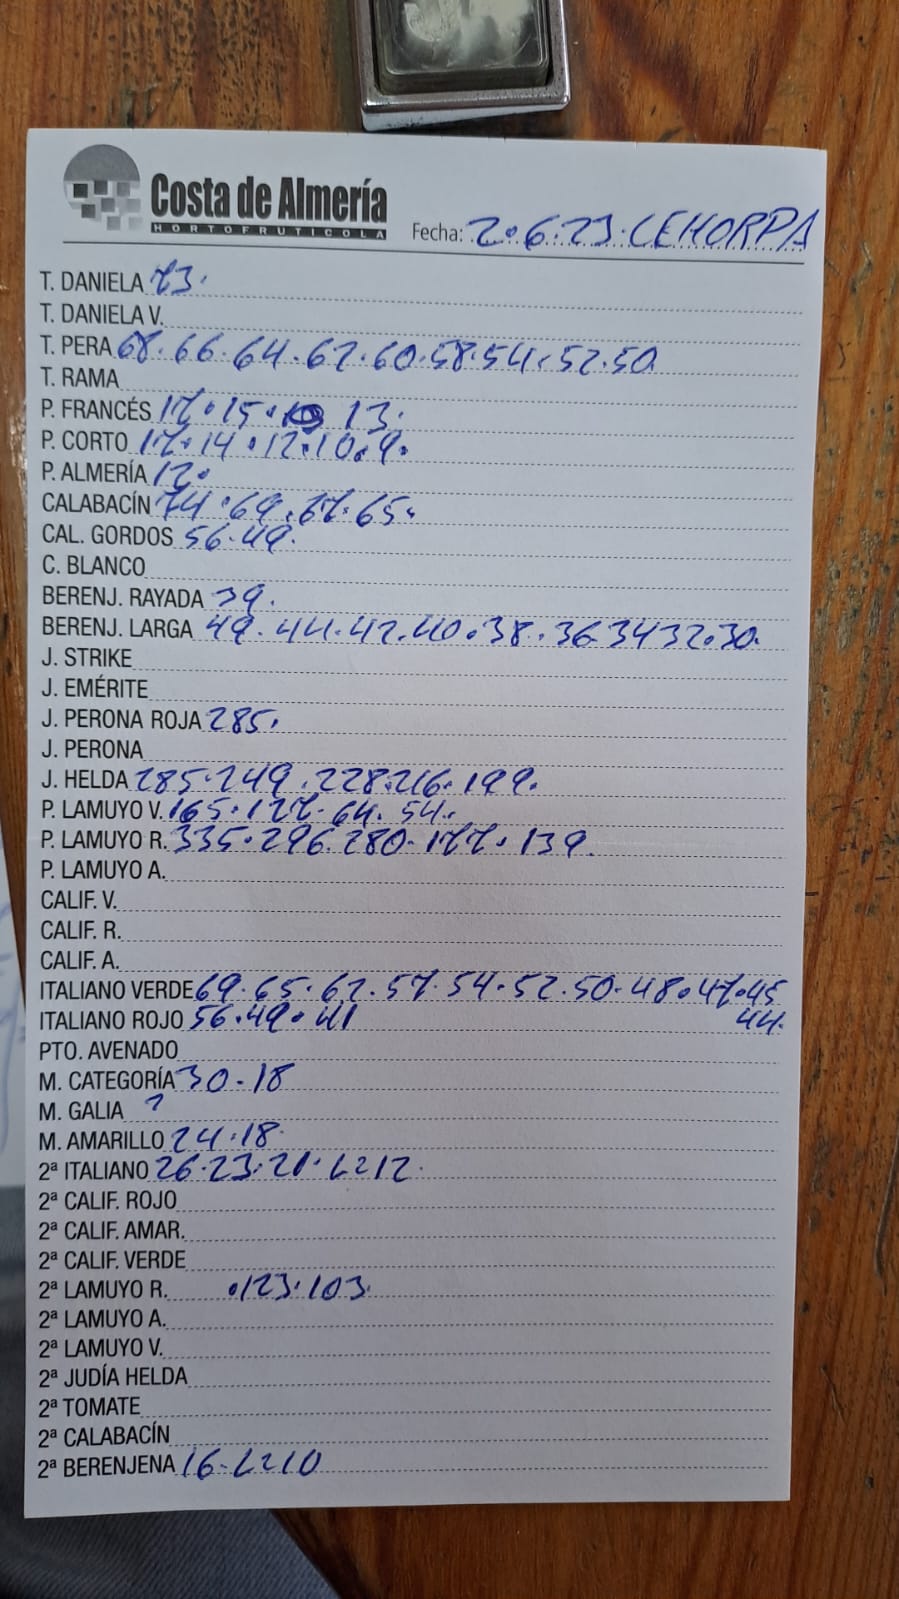 Costa de Almería
HORTOFRUTICOLA
Fecha: 2.6.23. CEHORPA
T. DANIELA 73.
T. DANIELA V.
T. PERA 68. 66. 64. 62. 60. 58. 54. 52. 50
T. RAMA
P. FRANCÉS 17. 15. 13.
P. CORTO 17. 14. 12. 10. 9.
P. ALMERÍA 12.
CALABACÍN 74. 69. 67. 65.
CAL. GORDOS 56. 49.
C. BLANCO
BERENJ. RAYADA 39.
BERENJ. LARGA 49. 44. 42. 40. 38. 36 34 32. 30.
J. STRIKE
J. EMÉRITE
J. PERONA ROJA 285.
J. PERONA
J. HELDA 285. 249. 228. 216. 199.
P. LAMUYO V. 165. 127. 64. 54.
P. LAMUYO R. 335. 296. 280. 177. 139.
P. LAMUYO A.
CALIF. V.
CALIF. R.
CALIF. A.
ITALIANO VERDE 69. 65. 62. 57. 54. 52. 50. 48. 47. 45
ITALIANO ROJO 56. 49. 41 44.
PTO. AVENADO
M. CATEGORÍA 30. 18
M. GALIA ?
M. AMARILLO 24. 18.
2ª ITALIANO 26. 23. 21. L212.
2ª CALIF. ROJO
2ª CALIF. AMAR.
2ª CALIF. VERDE
2ª LAMUYO R. .123. 103.
2ª LAMUYO A.
2ª LAMUYO V.
2ª JUDÍA HELDA
2ª TOMATE
2ª CALABACÍN
2ª BERENJENA 16. L210